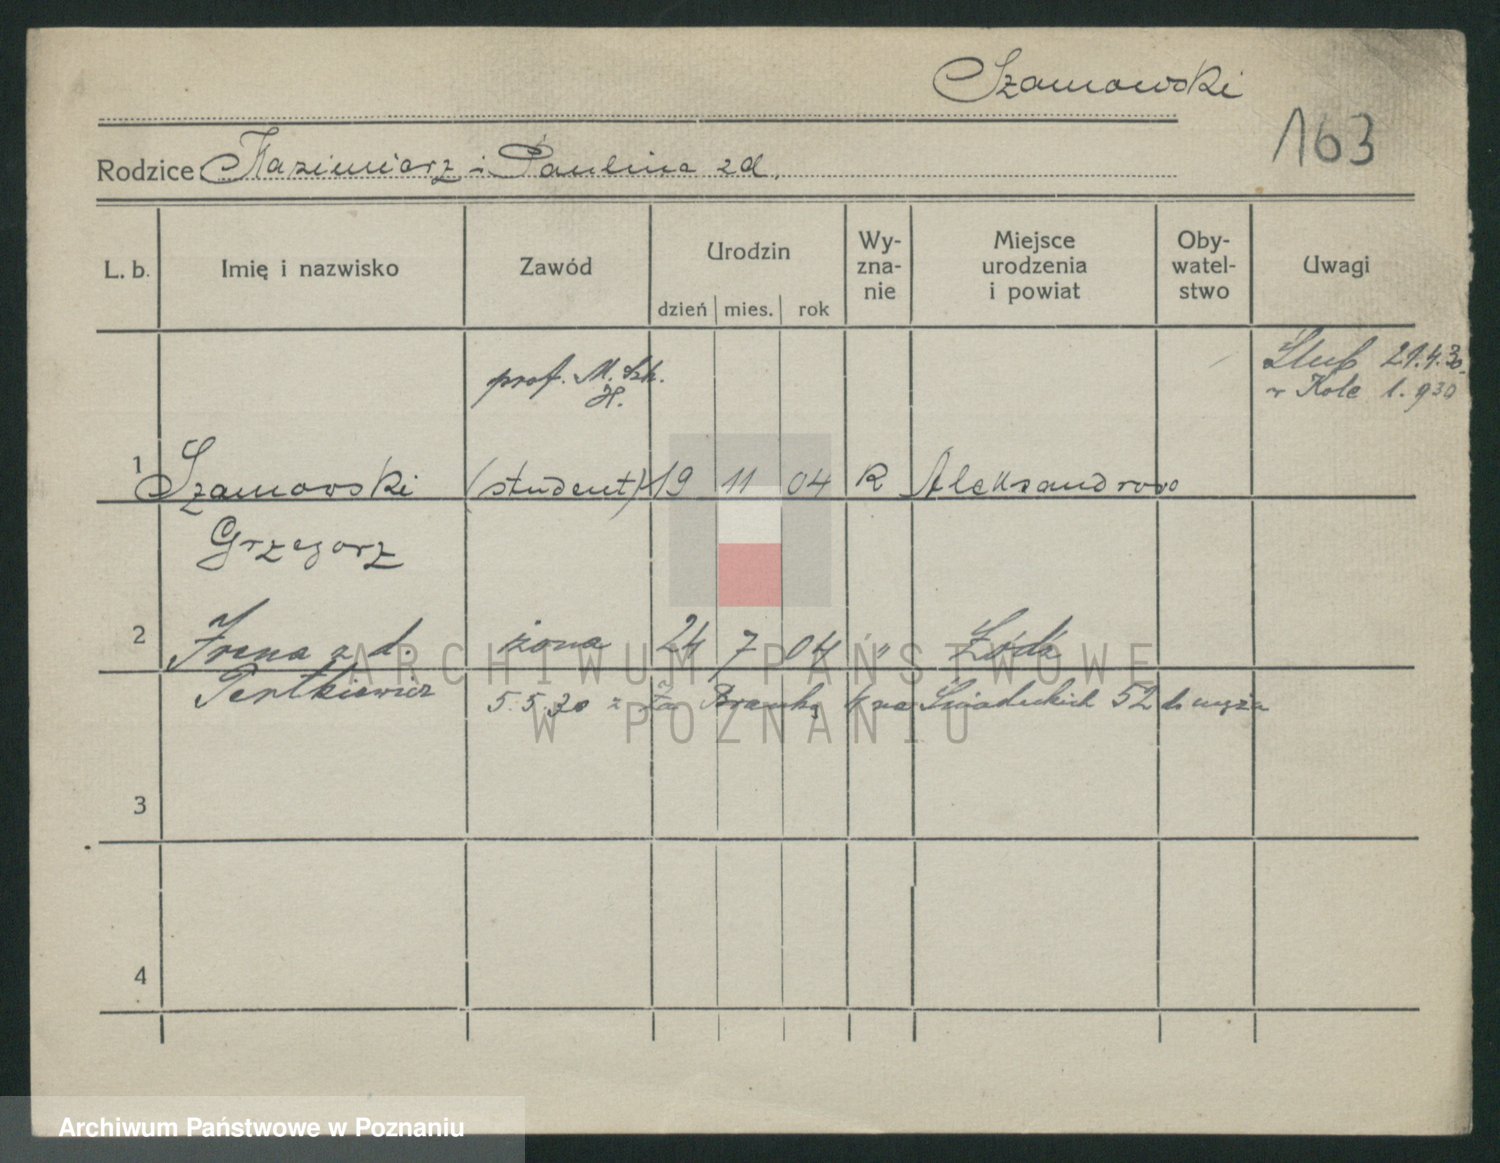 Szamowski
163
Rodzice: Kazimierz i Paulina z d.
L. b. Imię i nazwisko Zawód Urodzin dzień mies. rok Wy-zna-nie Miejsce urodzenia i powiat Oby-watel-stwo Uwagi
prof. M. Szk. H. Ślub 21.4.30. w Kole l. 930
1 Szamowski (student) 19 11 04 R Aleksandrowo
Grzegorz
2 Irena z d. żona 24 7 04 " Łódź
5.5.30 z Za Bramką na Śniadeckich 52 do męża
3
4
ARCHIWUM PAŃSTWOWE
W POZNANIU
Archiwum Państwowe w Poznaniu